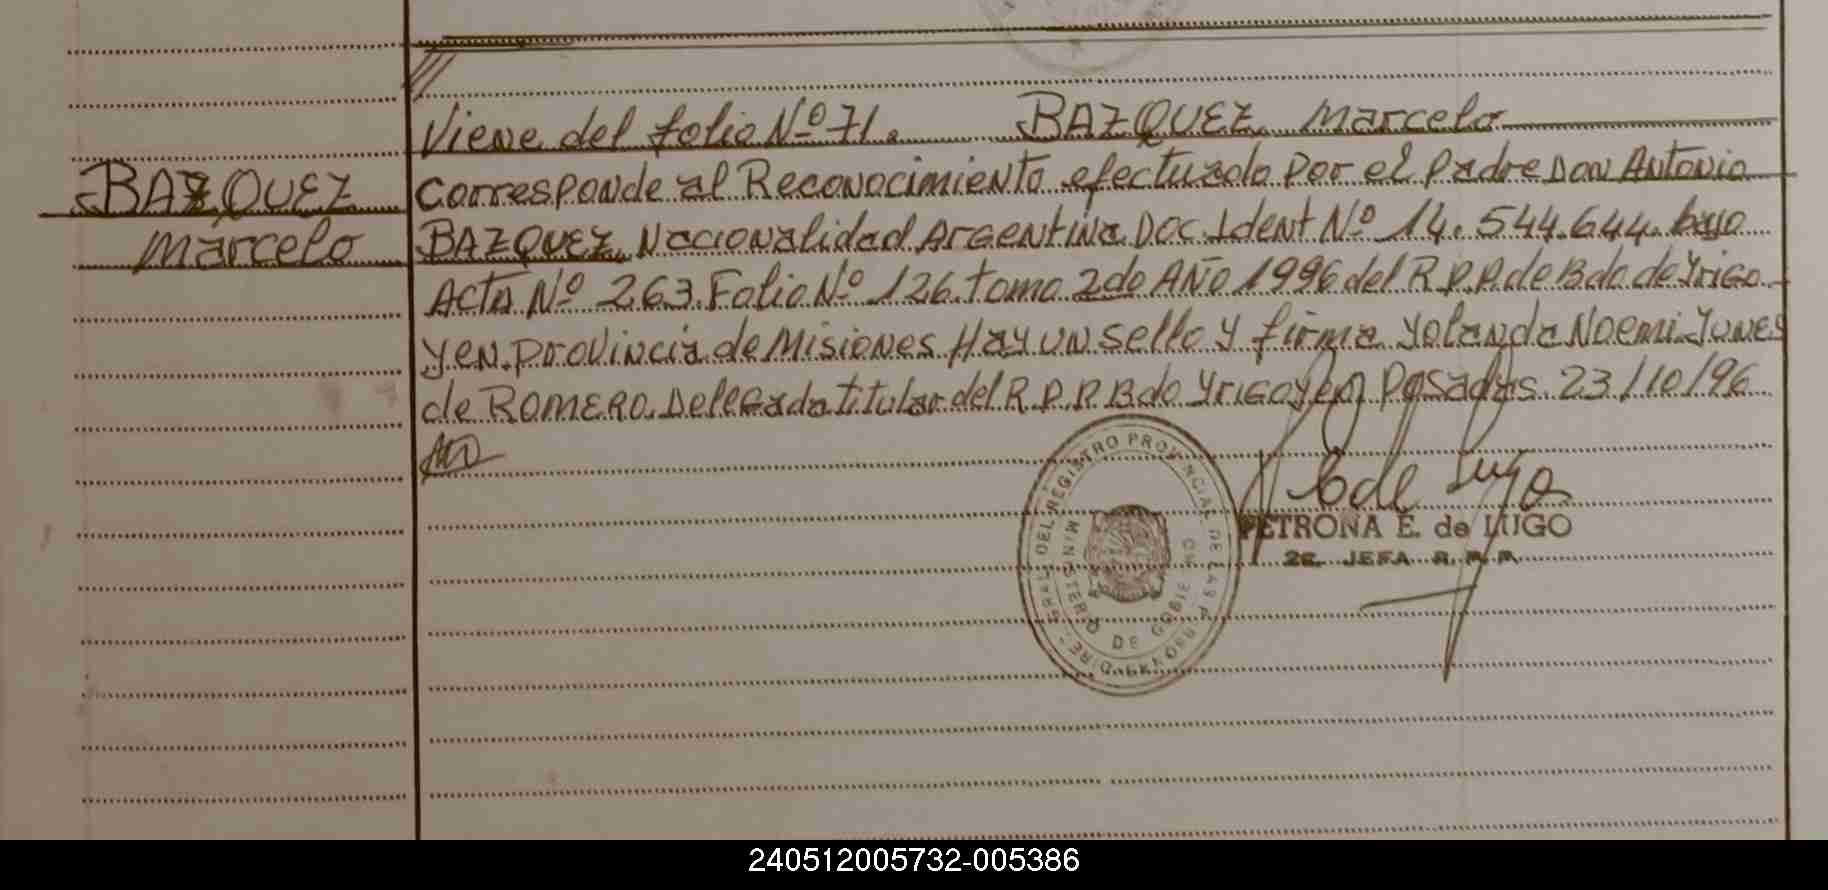 Viene del folio Nº 71. BAZQUEZ Marcelo
BAZQUEZ
Marcelo
Corresponde al Reconocimiento efectuado por el padre Don Antonio
BAZQUEZ, Nacionalidad Argentina Doc. Ident Nº 14.544.644. bajo
Acta Nº 263. Folio Nº 126. tomo 2do Año 1996 del R.P.P. de Bdo de Yrigo
yen. provincia de Misiones. Hay un sello y firma Yolanda Noemi Yunes
de ROMERO. Delegada titular del R.P.P. Bdo Yrigoyen Posadas. 23/10/96
DIRE. GRAL. DEL REGISTRO PROVINCIAL DE LAS P
MINISTERIO DE GOBIE
PETRONA E. de LUGO
2a. JEFA R.P.P.
240512005732-005386